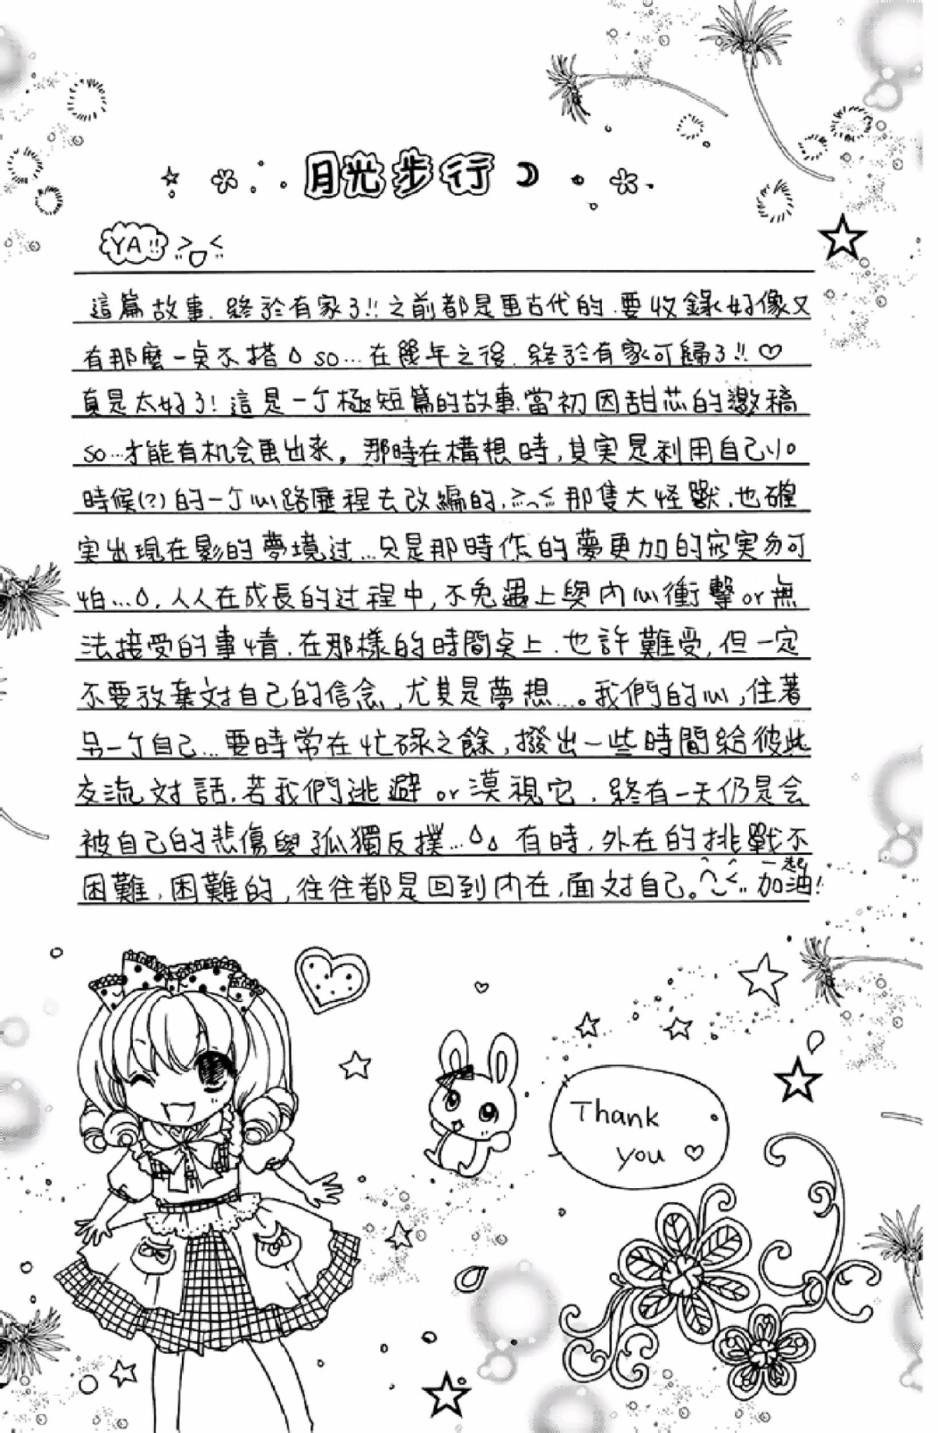 月光步行
YA!!
這篇故事.終於有家了!!之前都是画古代的.要收錄好像又
有那麼一点不搭 so…在幾年之後.終於有家可歸了!!♡
真是太好了!這是一个極短篇的故事.當初因甜芯的邀稿
so…才能有机会画出來。那時在構想時,其實是利用自己小。
時候(?)的一个心路歷程去改編的,那隻大怪獸,也確
實出現在影的夢境过…只是那時作的夢更加的寫實勿可
怕…,人人在成長的过程中,不免遇上與內心衝擊or無
法接受的事情.在那樣的時間点上.也許難受,但一定
不要放棄对自己的信念,尤其是夢想…。我們的心,住著
另一个自己…要時常在忙碌之餘,撥出一些時間給彼此
交流対話.若我們逃避or漠視它.終有一天仍是会
被自己的悲傷與孤獨反撲… 有時,外在的挑戰不
困難.困難的,往往都是回到內在,面対自己。一起加油!
Thank
you ♡